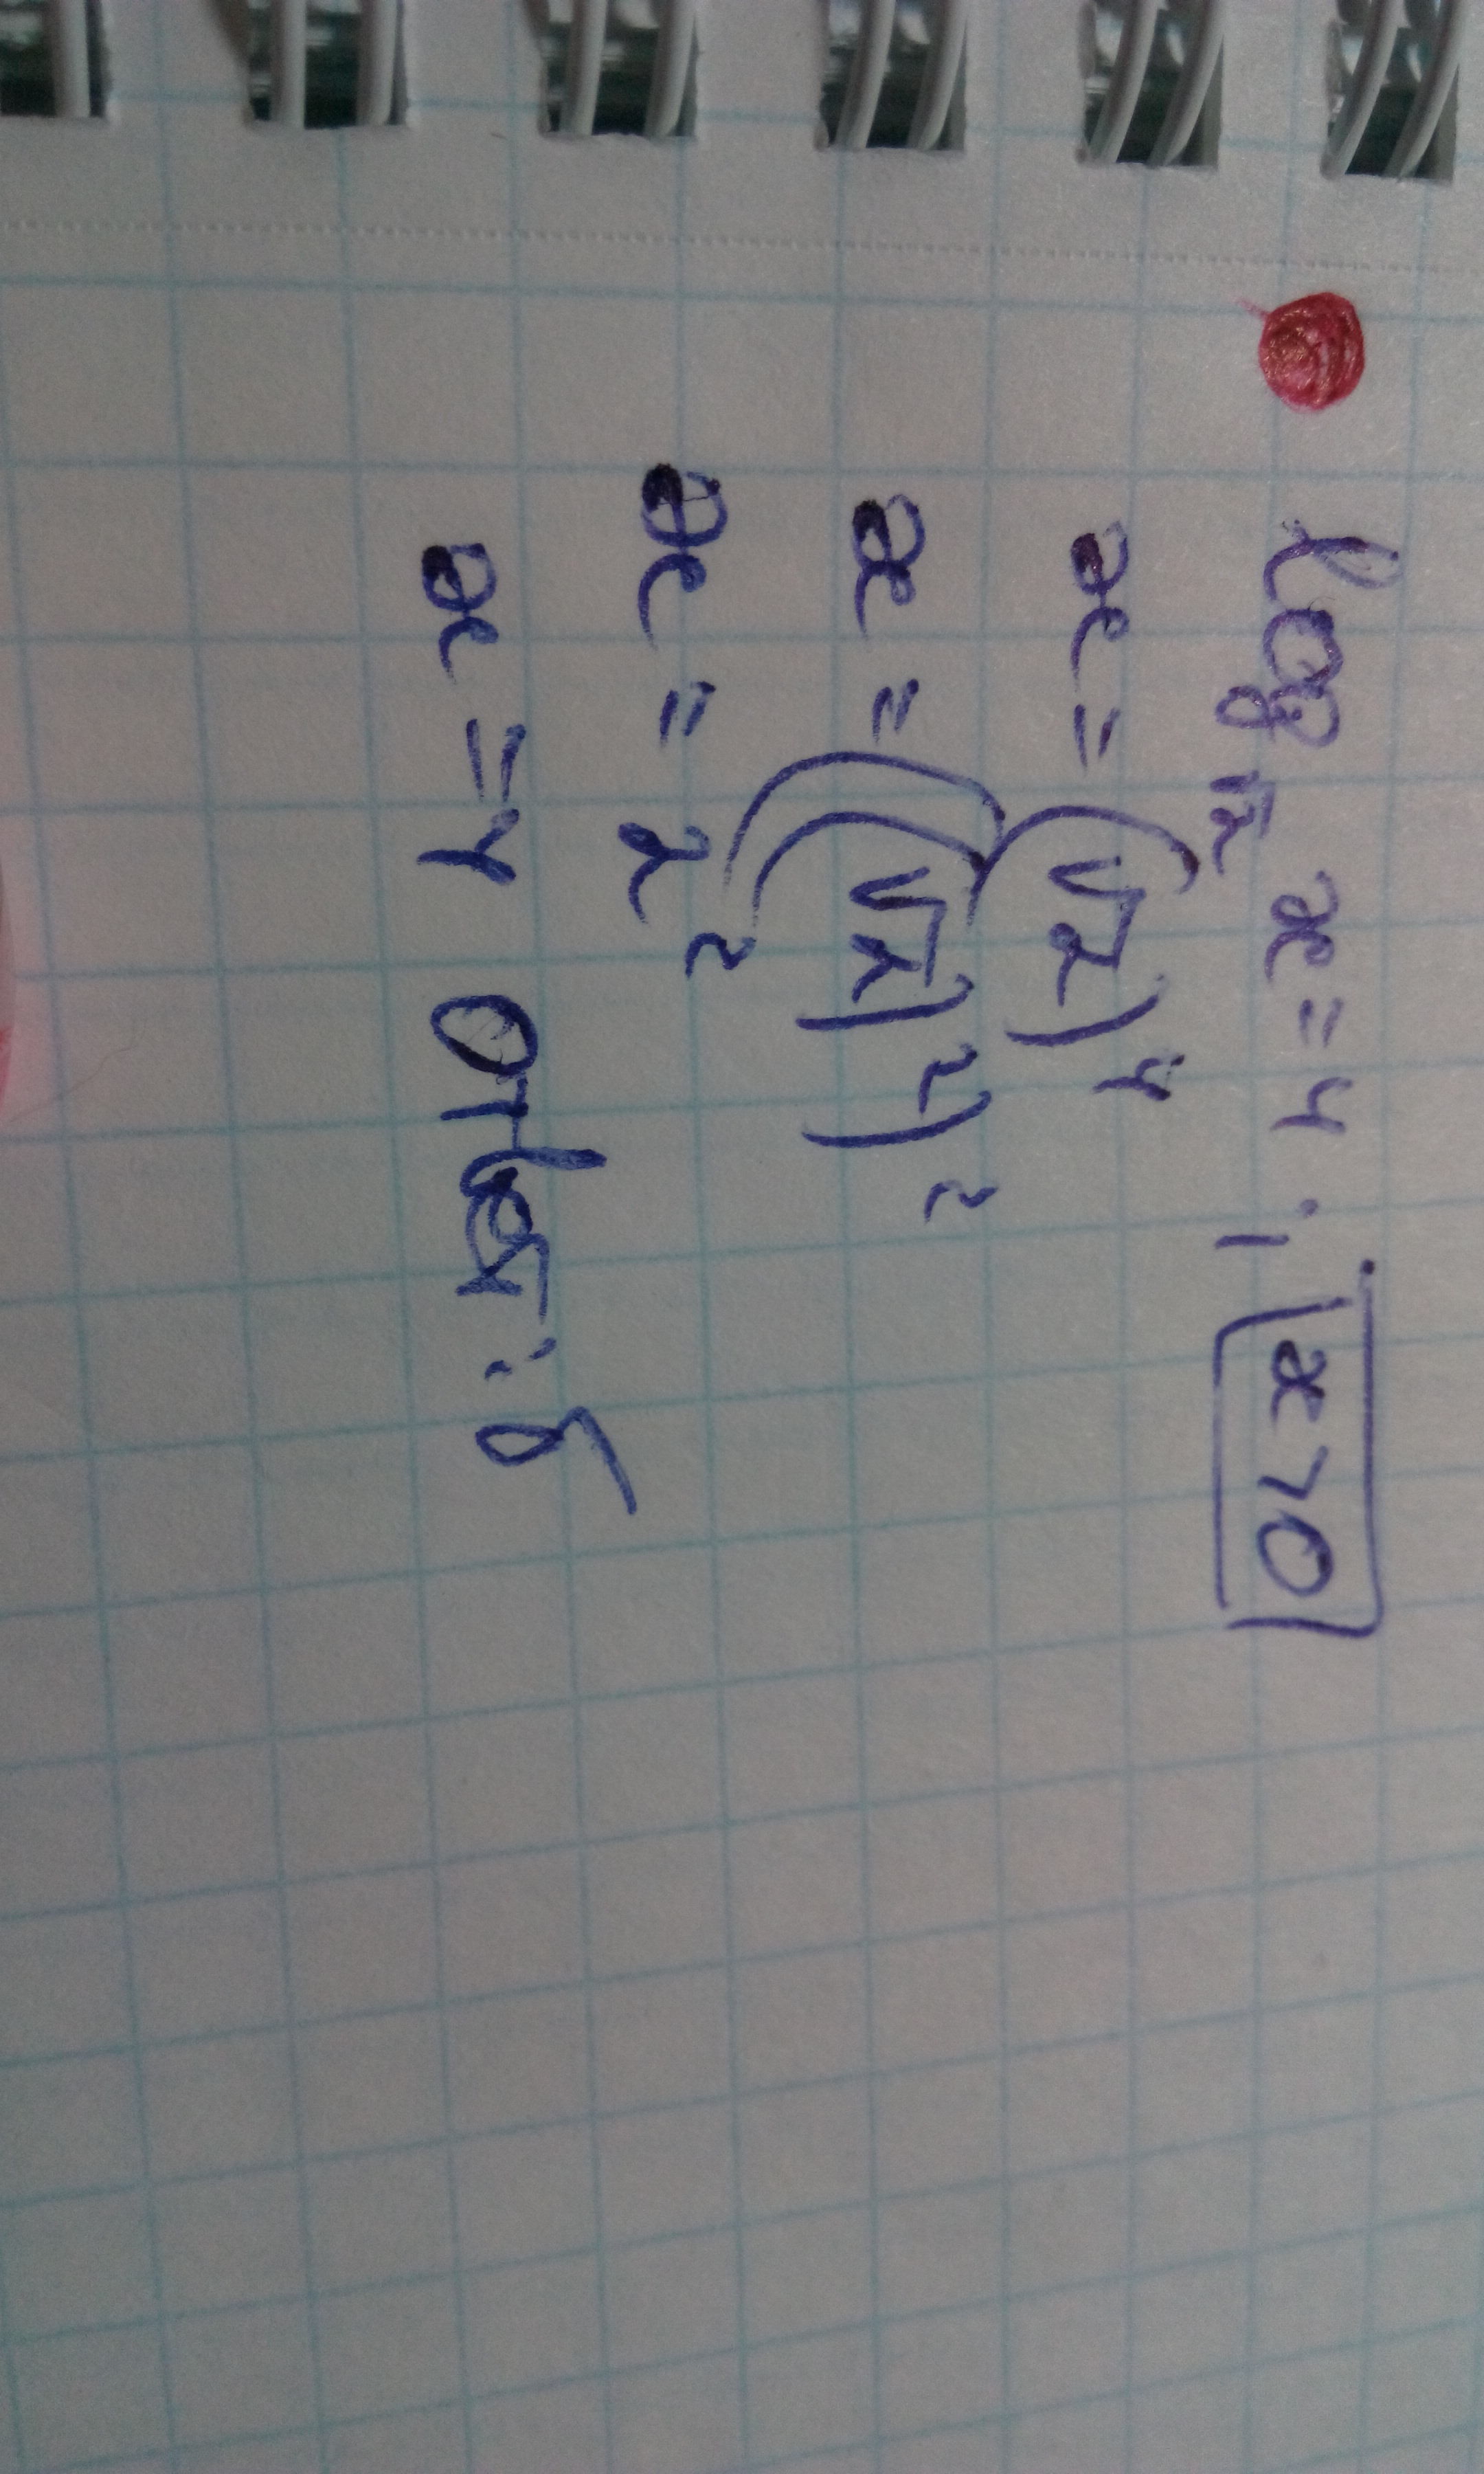 log_√2 x = 4; x > 0
x = (√2)^4
x = ((√2)^2)^2
x = 2^2
x = 4 Ответ: б